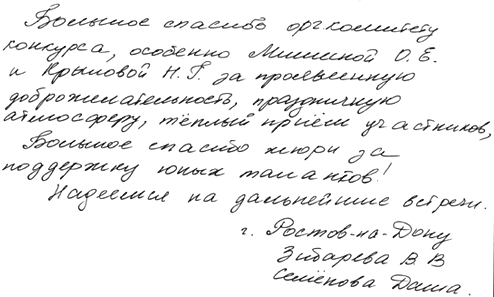 Большое спасибо оргкомитету
конкурса, особенно Мишиной О.Е.
и Крыловой Н.Г. за проявленную
доброжелательность, праздничную
атмосферу, тёплый приём участников,
Большое спасибо жюри за
поддержку юных талантов!
Надеемся на дальнейшие встречи.
г. Ростов-на-Дону
Зибарева В.В
Семёнова Даша.